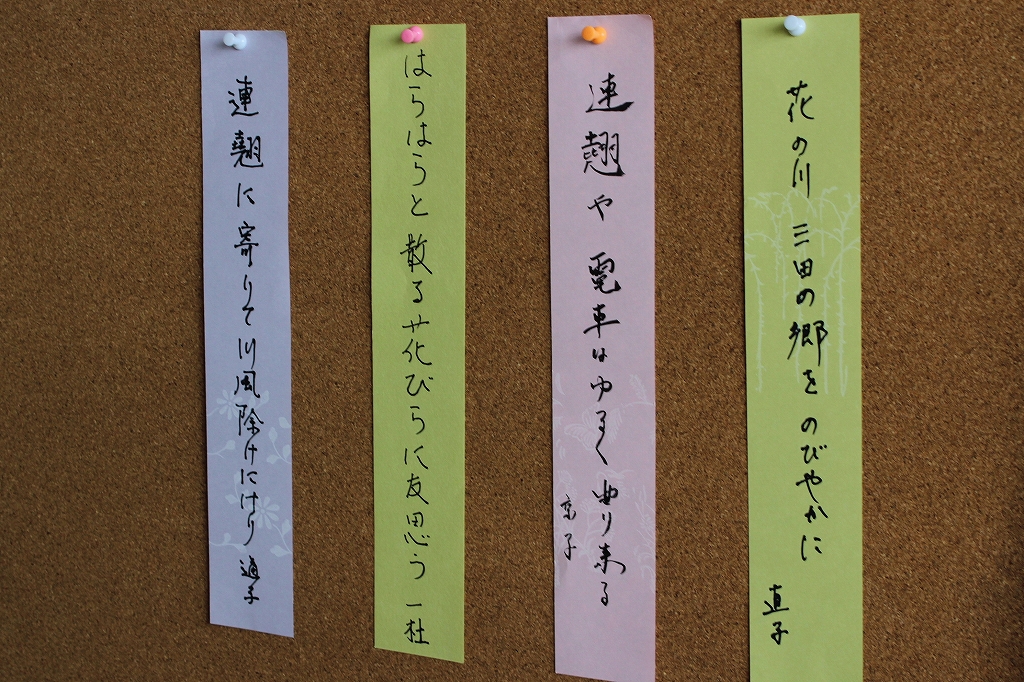 花の川 三田の郷を のびやかに
直子
連翹や 電車はゆるく 曲り来る
京子
はらはらと 散る花びらに友思う 一杜
連翹に寄りて川風除けにけり 通子